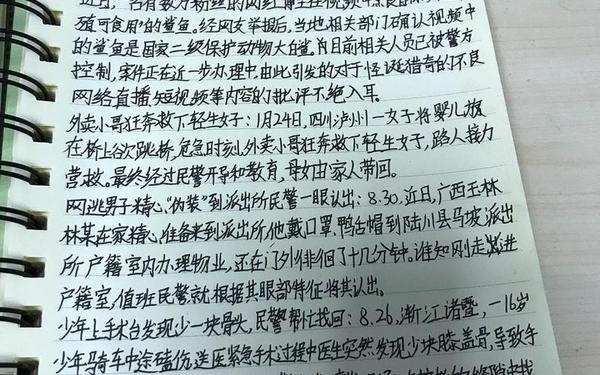 近日,名有数万粉丝的网红博主在视频中烹食
殖可食用"的鲨鱼。经网友举报后,当地相关部门确认视频中
的鲨鱼是国家二级保护动物大白鲨,目前相关人员已被警方
控制,案件正在近一步办理中,由此引发的对于怪诞猎奇的不良
网络直播、短视频等内容的批评不绝入耳。
外卖小哥狂奔救下轻生女子:1月24日,四川泸州一女子将婴儿放
在桥上欲跳桥,危急时刻,外卖小哥狂奔救下轻生女子,路人接力
营救。最终经过民警开导和教育,母女由家人带回。
网逃男子精心"伪装"到派出所民警一眼认出:8.30,近日,广西玉林
林某在家精心准备来到派出所,他戴口罩,鸭舌帽到陆川县马坡派出
所户籍室内办理物业,还在门外徘徊了十几分钟。谁知刚走进
户籍室,值班民警就根据其眼部特征将其认出。
少年上手术台发现少一块骨头,民警帮忙找回:8.26,浙江诸暨,一16岁
少年骑车中途磕伤,送医紧急手术过程中医生突然发现少块膝盖骨,导致手